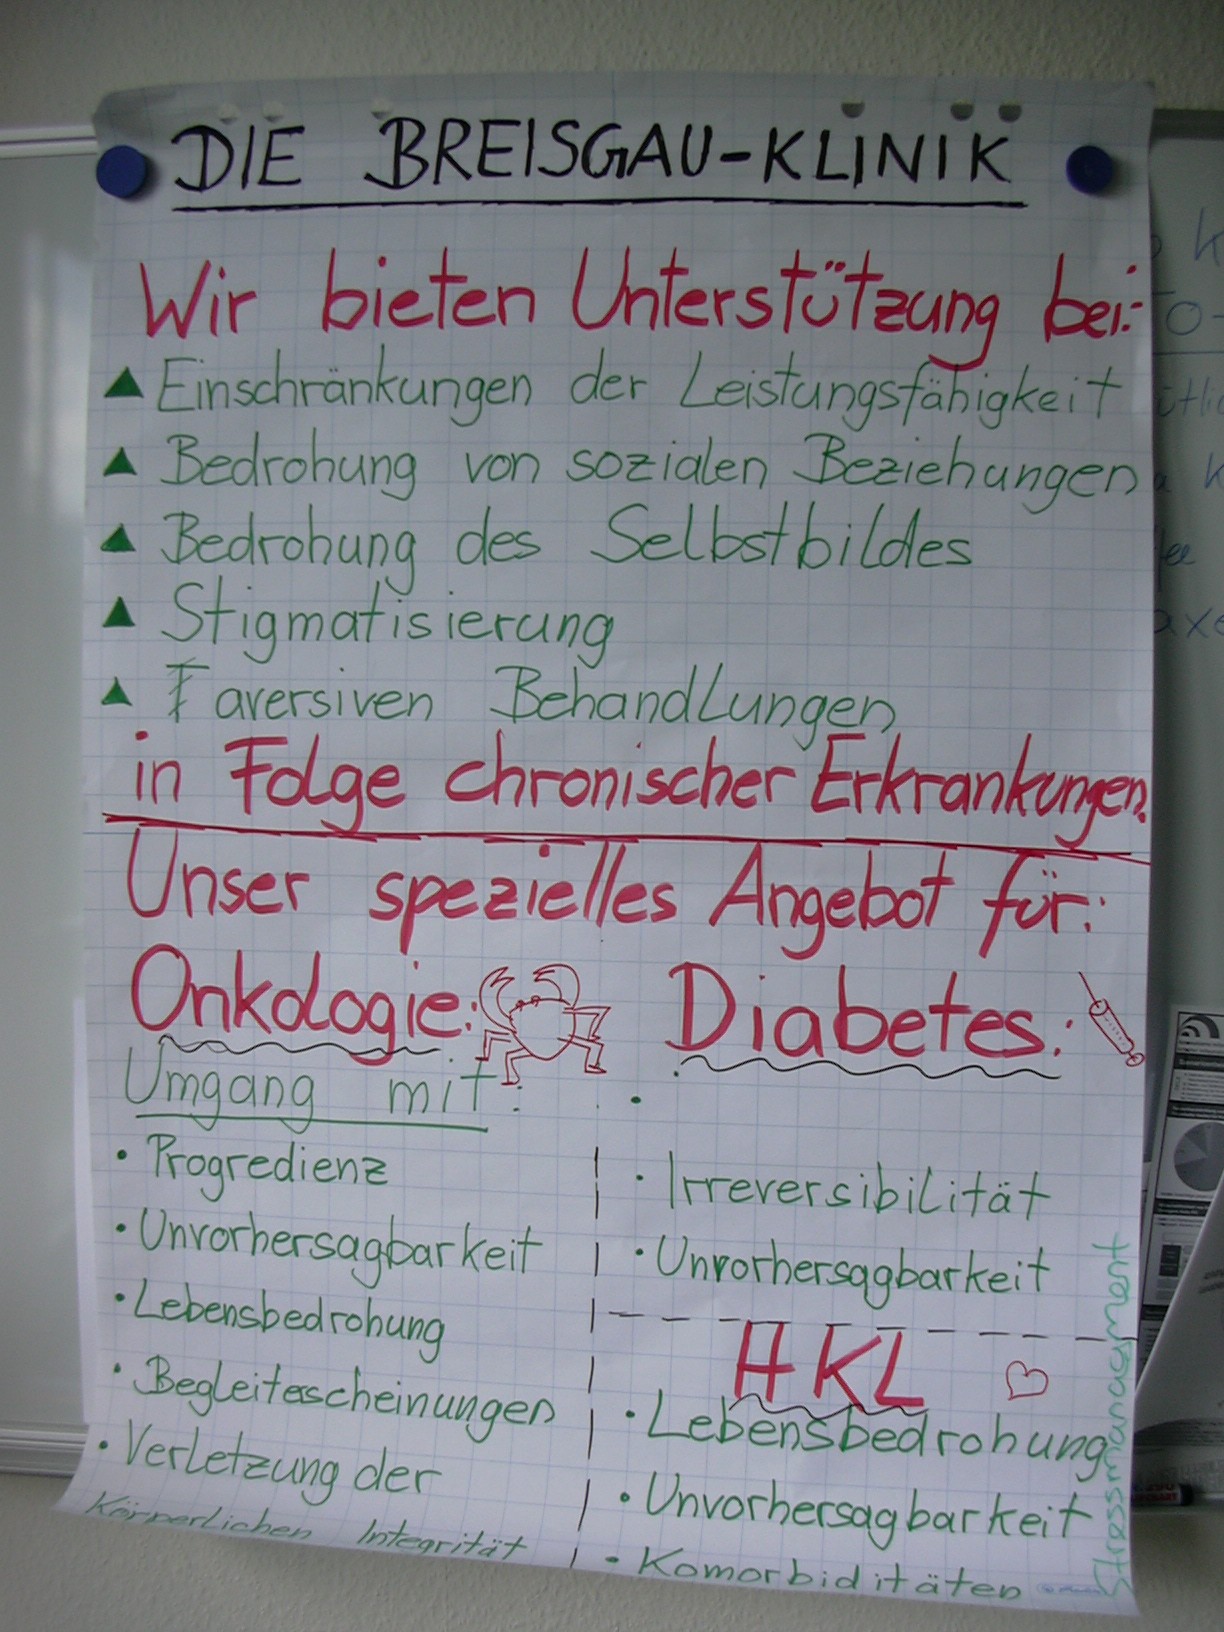 DIE BREISGAU-KLINIK
Wir bieten Unterstützung bei:
▲ Einschränkungen der Leistungsfähigkeit
▲ Bedrohung von sozialen Beziehungen
▲ Bedrohung des Selbstbildes
▲ Stigmatisierung
▲ aversiven Behandlungen
in Folge chronischer Erkrankungen.
Unser spezielles Angebot für:
Onkologie:
Umgang mit:
• Progredienz
• Unvorhersagbarkeit
• Lebensbedrohung
• Begleitescheinungen
• Verletzung der
Körperlichen Integrität
Diabetes:
•
• Irreversibilität
• Unvorhersagbarkeit
HKL
• Lebensbedrohung
• Unvorhersagbarkeit
• Komorbiditäten
Stressmanagment